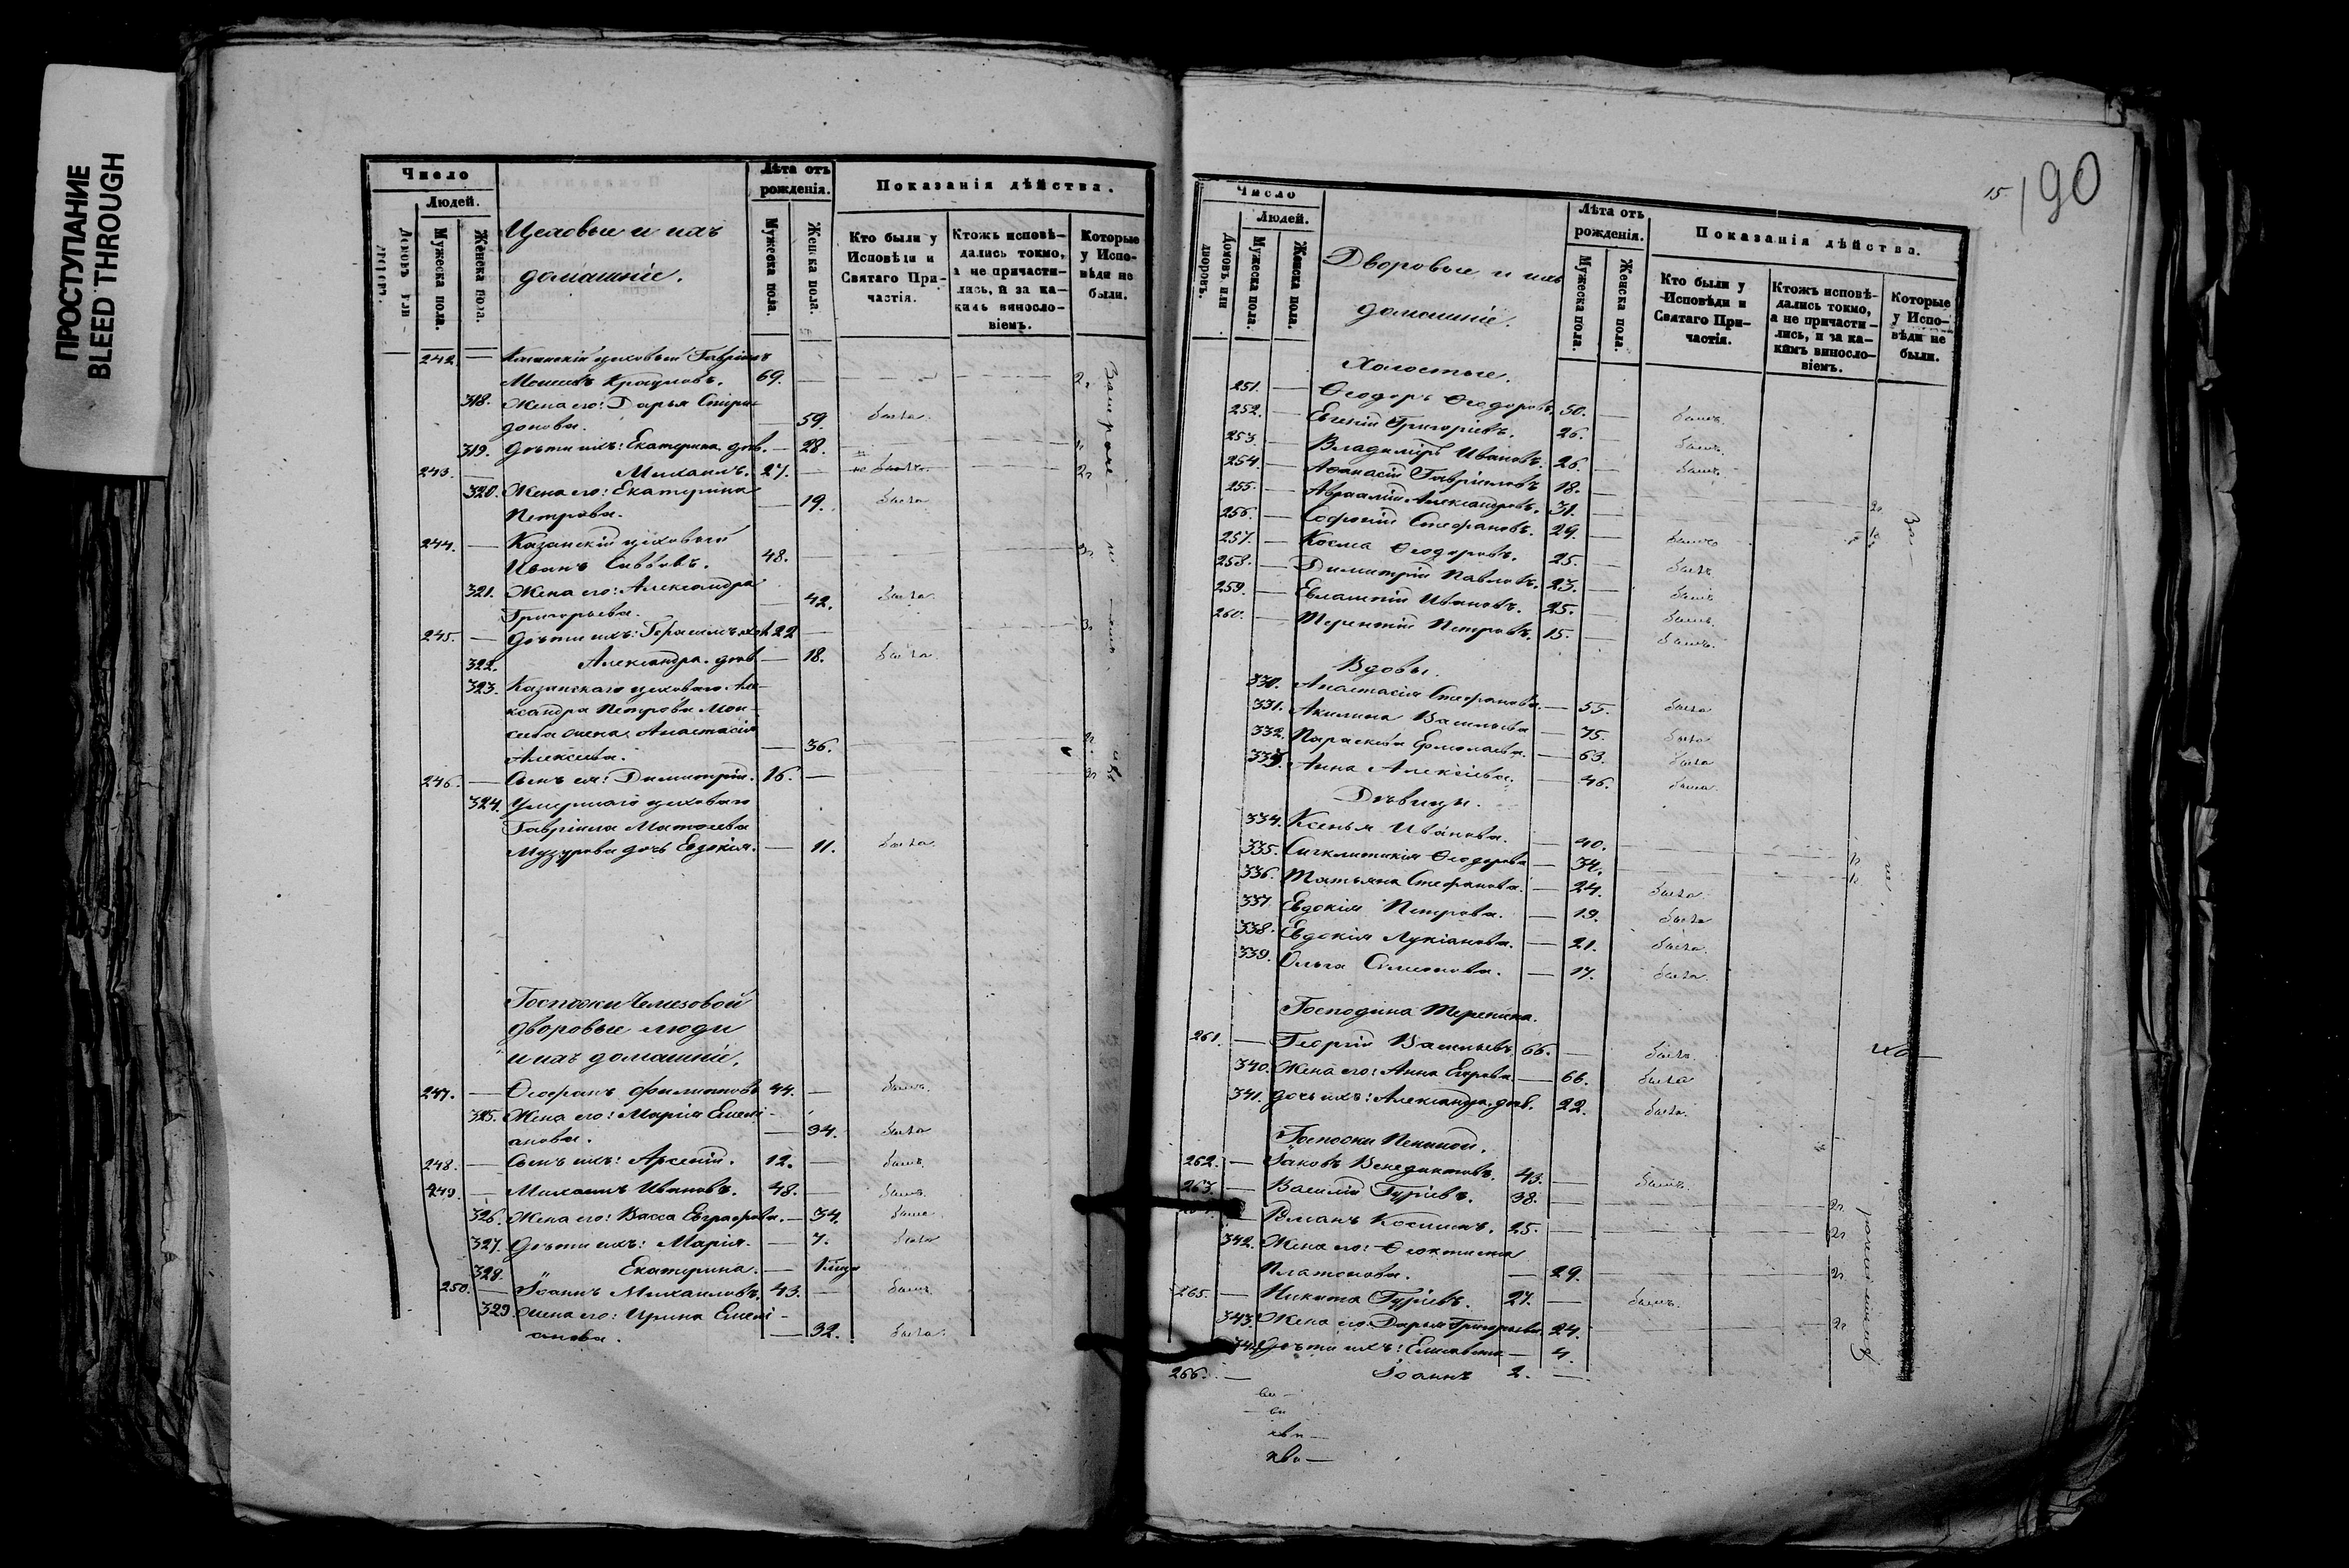 ПРОСТУПАНИЕ
BLEED THROUGH
Число
Людей.
Домовъ или
Мужеска пола.
Женска пола.
Цеховые и ихъ
домашніе.
Лѣта отъ
рожденія.
Мужеска пола.
Женска пола.
Показанія дѣйства.
Кто были у
Исповѣди и
Святаго При-
частія.
Ктожъ исповѣ-
дались токмо,
а не причасти-
лись, и за ка-
кимъ виносло-
віемъ.
Которые
у Испо-
вѣди не
были.
242. — Казанскій цеховый Гавріилъ
69. —
318. Жена его: Дарья Спири-
донова. — 59. была.
319. Дѣти ихъ: Екатерина дѣв. — 28.
243. — Михаилъ. 27. —
320. Жена его: Екатерина
Петрова. — 19. была
244. — Казанскій цеховый
Иванъ Саввовъ. 48. —
321. Жена его: Александра
Григорьева. — 42. была.
245. — Дѣти ихъ: Герасимъ, хол. 22 —
322. Александра. дѣв. — 18. была.
323. Казанскаго цеховаго Але-
ксандра Петрова Мои-
сеева жена, Анастасія
Алексѣева. — 36.
246. — Сынъ ея: Димитрій. 16. —
324. Умершаго цеховаго
Гавріила Матѳеева
Музурова дочь Евдокія. — 11. была.
Госпожи Челизовой
дворовые люди
и ихъ домашніе.
247. — Ѳеофанъ Филиповъ 44. — былъ.
325. Жена его: Марія Емели-
анова. — 34. была
248. — Сынъ ихъ: Арсеній. 12. — былъ.
249. — Михаилъ Ивановъ. 48. — былъ.
326. Жена его: Васса Евграфова. — 34. была
327. Дѣти ихъ: Марія. — 7. была
328. Екатерина. — 1 года
250. — Іоаннъ Михаиловъ. 43. — былъ.
329. Жена его: Ирина Емели-
анова. — 32. была.
15.
190
Число
Людей.
Домовъ или
дворовъ.
Мужеска пола.
Женска пола.
Дворовые и ихъ
домашніе.
Лѣта отъ
рожденія.
Мужеска пола.
Женска пола.
Показанія дѣйства.
Кто были у
Исповѣди и
Святаго При-
частія.
Ктожъ исповѣ-
дались токмо,
а не причасти-
лись, и за ка-
кимъ виносло-
віемъ.
Которые
у Испо-
вѣди не
были.
Холостые.
251. — Ѳеодоръ Ѳеодоровъ. 50. — былъ.
252. — Евгеній Григоріевъ. 26. — былъ.
253. — Владиміръ Ивановъ. 26. — былъ.
254. — Аѳанасій Гавріиловъ 18. —
255. — Авраамій Александровъ. 31. —
256. — Софоній Стефановъ. 29. — былъ
257. — Косма Ѳеодоровъ. 25. — былъ
258. — Димитрій Павловъ. 23. — былъ
259. — Евлампій Ивановъ. 25. — былъ.
260. — Терентій Петровъ. 15. — былъ.
Вдовы.
330. Анастасія Стефанова. — 55. была
331. Акилина Васильева — 75. была
332. Параскева Ермолаева. — 63. была
333. Анна Алексіева. — 46. была.
Дѣвицы.
334. Ксенья Иванова. — 40.
335. Синклитикія Ѳеодорова — 34.
336. Татьяна Стефанова. — 24. была.
337. Евдокія Петрова. — 19. была
338. Евдокія Лукіанова. — 21. была.
339. Ольга Симонова. — 17. была.
Господина Теренина.
261. — Георгій Васильевъ 66. — былъ.
340. Жена его: Анна Егорова — 66. была
341. Дочь ихъ: Александра, дѣв. 22. была.
Госпожи Пениной.
262. — Іаковъ Венедиктовъ. 43. — былъ.
263. — Василій Гуріевъ. 38. —
— Романъ Косминъ. 25. —
342. Жена его: Ѳеоктиста
Платонова. — 29.
265. — Никита Гуріевъ. 27. — былъ.
343. Жена его: Дарья Григорьева 24.
344. Дѣти ихъ: Елисавета — 4.
266. — Іоаннъ 2. —